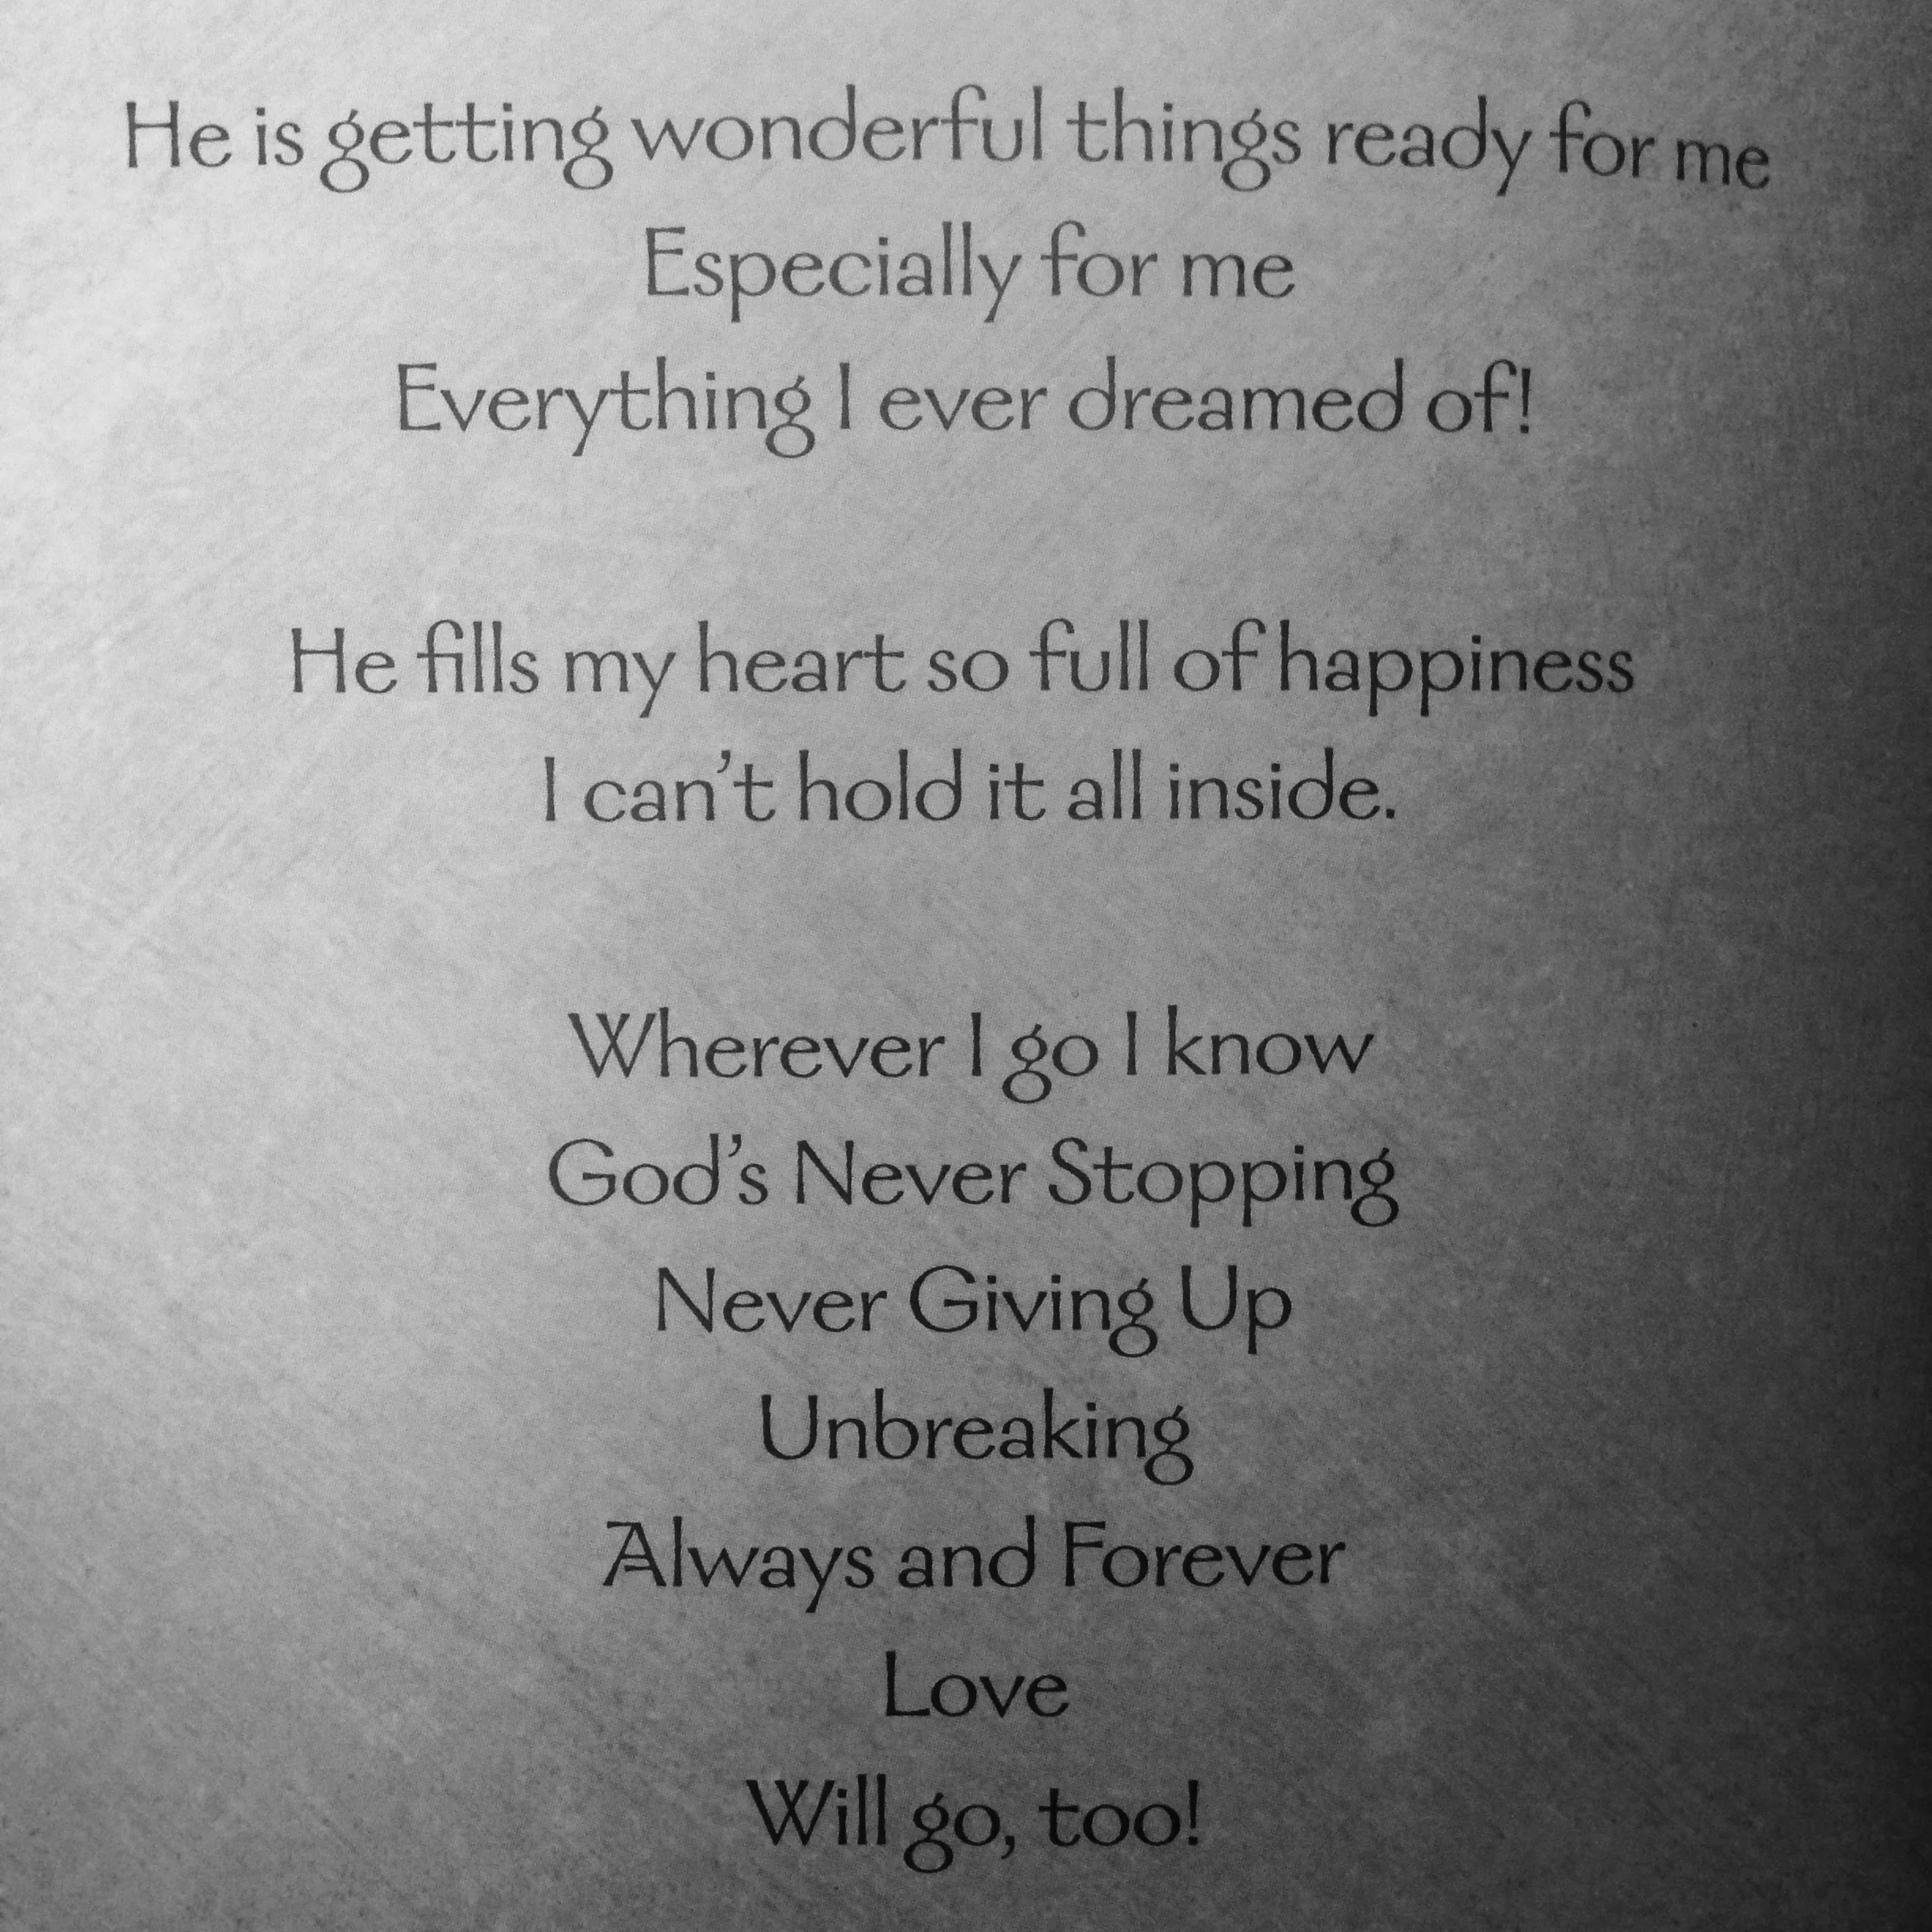 He is getting wonderful things ready for me
Especially for me
Everything I ever dreamed of!
He fills my heart so full of happiness
I can’t hold it all inside.
Wherever I go I know
God’s Never Stopping
Never Giving Up
Unbreaking
Always and Forever
Love
Will go, too!